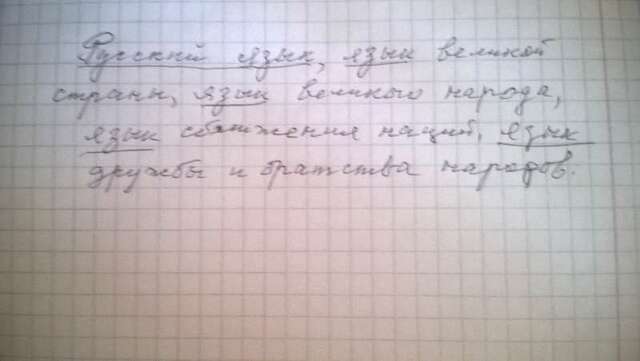 Русский язык, язык великой
страны, язык великого народа,
язык сближения наций, язык
дружбы и братства народов.